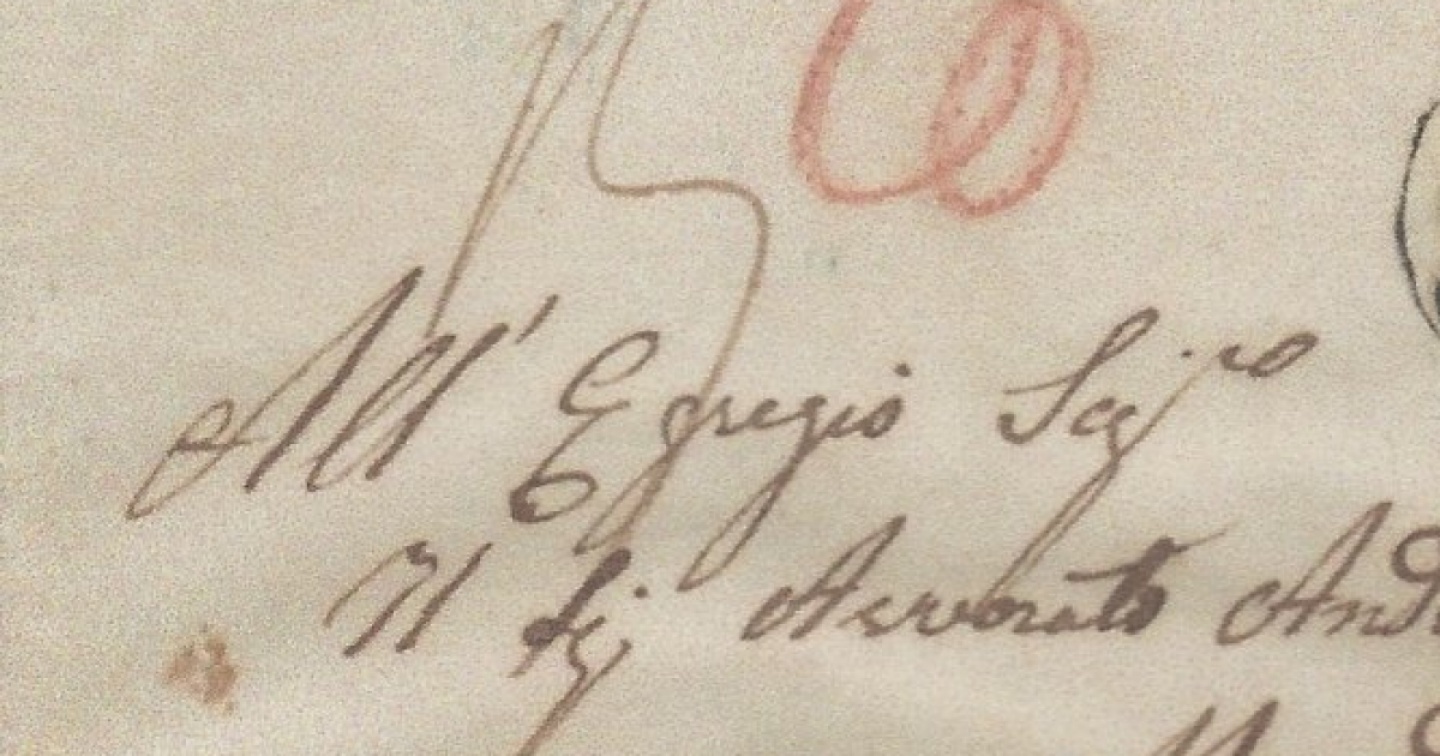 All' Egregio Sigro
Il Sig Avvocato And